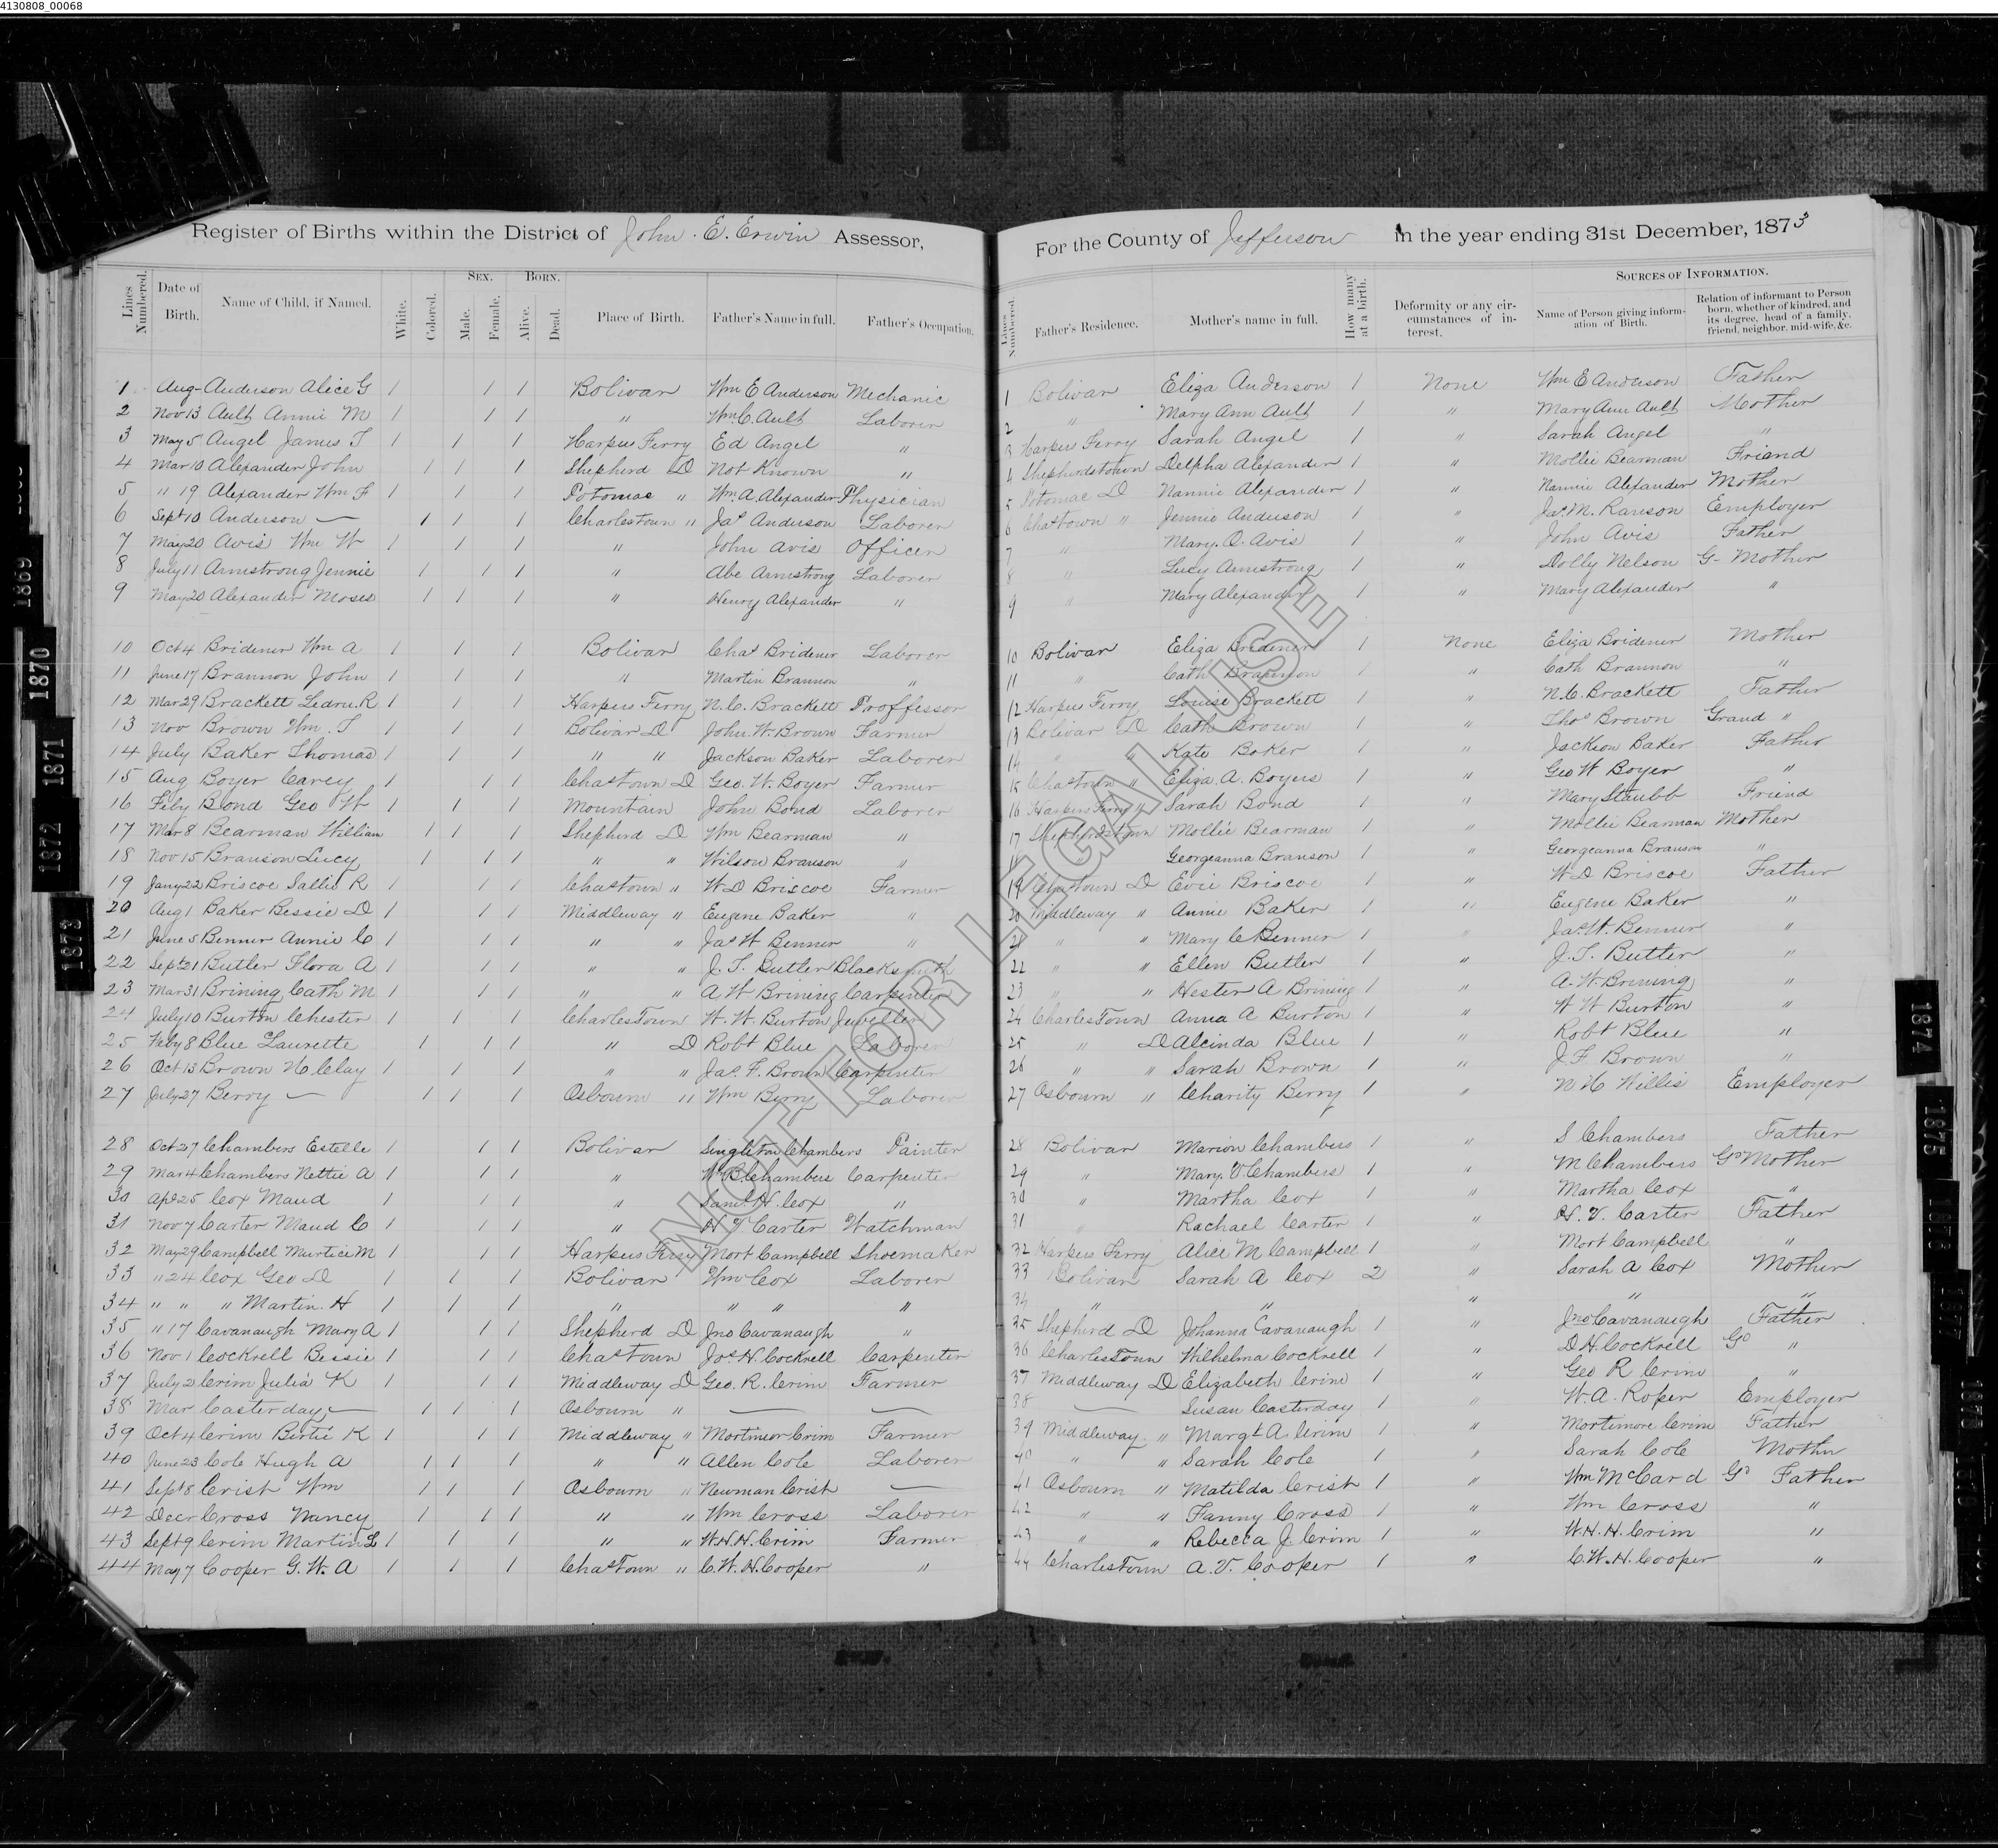 4130808_00068
Register of Births within the District of John. E. Erwin Assessor,
Lines Numbered. Date of Birth. Name of Child, if Named. White. Colored. SEX. Male. Female. BORN. Alive. Dead. Place of Birth. Father's Name in full. Father's Occupation.
1 Aug- Anderson Alice G 1 1 1 Bolivar Wm E Anderson Mechanic
2 Nov 13 Ault Annie M 1 1 1 " Wm. C. Ault Laborer
3 May 5 Angel James T 1 1 1 Harpers Ferry Ed Angel "
4 Mar 10 Alexander John 1 1 1 Shepherd D Not Known "
5 " 19 Alexander Wm F 1 1 1 Potomac " Wm. A. Alexander Physician
6 Sept 10 Anderson — 1 1 1 Charlestown " Jas Anderson Laborer
7 May 20 Avis Wm W 1 1 1 " John Avis Officer
8 July 11 Armstrong Jennie 1 1 1 " Abe Armstrong Laborer
9 May 20 Alexander Moses 1 1 1 " Henry Alexander "
10 Oct 4 Bridener Wm A 1 1 1 Bolivar Chas Bridener Laborer
11 June 17 Brannon John 1 1 1 " Martin Brannon "
12 Mar 29 Brackett Ledru. R 1 1 1 Harpers Ferry N. C. Brackett Proffessor
13 Nov Brown Wm. T 1 1 1 Bolivar D John. W. Brown Farmer
14 July Baker Thomas 1 1 1 " " Jackson Baker Laborer
15 Aug Boyer Carey 1 1 1 Chastown D Geo. W. Boyer Farmer
16 Feby Bond Geo W 1 1 1 Mountain John Bond Laborer
17 Mar 8 Bearman William 1 1 1 Shepherd D Wm Bearman "
18 Nov 15 Branson Lucy 1 1 1 " " Wilson Branson "
19 Jany 22 Briscoe Sallie R 1 1 1 Chastown " W. D Briscoe Farmer
20 Aug 1 Baker Bessie D 1 1 1 Middleway " Eugene Baker "
21 June 5 Benner Annie C 1 1 1 " " Jas W Benner "
22 Sept 21 Butler Flora A 1 1 1 " " J. T. Butler Blacksmith
23 Mar 31 Brining Cath M 1 1 1 " " A W Brining Carpenter
24 July 10 Burton Chester 1 1 1 CharlesTown W. W. Burton Jeweller
25 Feby 8 Blue Laurette 1 1 1 " D Robt Blue Laborer
26 Oct 13 Brown H Clay 1 1 1 " " Jas. F. Brown Carpenter
27 July 27 Berry — 1 1 1 Osbourn " Wm Berry Laborer
28 Oct 27 Chambers Estelle 1 1 1 Bolivar Singleton Chambers Painter
29 Mar 4 Chambers Nettie A 1 1 1 " Chambers Carpenter
30 Apl 25 Cox Maud 1 1 1 " Saml. H. Cox "
31 Nov 7 Carter Maud C 1 1 1 " H V Carter Watchman
32 May 29 Campbell M 1 1 1 Harpers Ferry Mort Campbell Shoemaker
33 " 24 Cox Geo D 1 1 1 Bolivar Wm Cox Laborer
34 " " " Martin. H 1 1 1 " " " "
35 " 17 Cavanaugh Mary A 1 1 1 Shepherd D Jno Cavanaugh "
36 Nov 1 Cockrell Bessie 1 1 1 ChasTown Jos H. Cockrell Carpenter
37 July 2 Crim Julia K 1 1 1 Middleway D Geo. R. Crim Farmer
38 Mar Casterday — 1 1 1 Osbourn " — —
39 Oct 4 Crim Bertie K 1 1 1 Middleway " Mortimor Crim Farmer
40 June 23 Cole Hugh A 1 1 1 " " Allen Cole Laborer
41 Sept 8 Crist Wm 1 1 1 Osbourn " Newman Crist —
42 Decr Cross Nancy 1 1 1 " " Wm Cross Laborer
43 Sept 9 Crim Martin L 1 1 1 " " W. H. H. Crim Farmer
44 May 7 Cooper G. W. A 1 1 1 ChasTown " C. W. H. Cooper "
For the County of Jefferson In the year ending 31st December, 1873
Lines Numbered. Father's Residence. Mother's name in full. How many at a birth. Deformity or any circumstances of interest. SOURCES OF INFORMATION. Name of Person giving information of Birth. Relation of informant to Person born, whether of kindred, and its degree, head of a family, friend, neighbor, mid-wife, &c.
1 Bolivar Eliza Anderson 1 None Wm E Anderson Father
2 " Mary Ann Ault 1 " Mary Ann Ault Mother
3 Harpers Ferry Sarah Angel 1 " Sarah Angel "
4 Shepherdstown Delpha Alexander 1 " Mollie Bearman Friend
5 Potomac D Nannie Alexander 1 " Nannie Alexander Mother
6 Chastown " Jennie Anderson 1 " Jas. M. Ranson Employer
7 " Mary. O. Avis 1 " John Avis Father
8 " Lucy Armstrong 1 " Dolly Nelson G- Mother
9 " Mary Alexander 1 " Mary Alexander "
10 Bolivar Eliza Bridener 1 None Eliza Bridener Mother
11 " Cath Brannon 1 " Cath Brannon "
12 Harpers Ferry Louise Brackett 1 " N. C. Brackett Father
13 Bolivar D Cath Brown 1 " Thos Brown Grand "
14 " " Kate Baker 1 " Jackson Baker Father
15 Chastown " Eliza. A. Boyers 1 " Geo W Boyer "
16 Harpers Ferry " Sarah Bond 1 " Mary Staubb Friend
17 Shepherdstown Mollie Bearman 1 " Mollie Bearman Mother
18 Georgeanna Branson 1 " Georgeanna Branson "
19 Chastown D Evie Briscoe 1 " W D Briscoe Father
20 Middleway " Annie Baker 1 " Eugene Baker "
21 " " Mary C Benner 1 " Jas W. Benner "
22 " " Ellen Butler 1 " J. T. Butler "
23 " " Hester A Brining 1 " A. W. Brining "
24 CharlesTown Anna A Burton 1 " W W Burton "
25 " D Alcinda Blue 1 " Robt Blue "
26 " " Sarah Brown 1 " J. F. Brown "
27 Osbourn " Charity Berry 1 " N H Willis Employer
28 Bolivar Marion Chambers 1 " S Chambers Father
29 " Mary. V. Chambers 1 " M Chambers Gd Mother
30 " Martha Cox 1 " Martha Cox "
31 " Rachael Carter 1 " H. V. Carter Father
32 Harpers Ferry Alice M Campbell 1 " Mort Campbell "
33 Bolivar Sarah A Cox 2 " Sarah A Cox Mother
34 " " " " "
35 Shepherd D Johanna Cavanaugh 1 " Jno Cavanaugh Father
36 CharlesTown Wilhelma Cockrell 1 " D H. Cockrell Gd "
37 Middleway D Elizabeth Crim 1 " Geo R Crim "
38 — Susan Casterday 1 " W. A. Roper Employer
39 Middleway " Margt A. Crim 1 " Mortimore Crim Father
40 " " Sarah Cole 1 " Sarah Cole Mother
41 Osbourn " Matilda Crist 1 " Wm McCard Gd Father
42 " " Fanny Cross 1 " Wm Cross "
43 " " Rebecca J. Crim 1 " W. H. H. Crim "
44 CharlesTown A. V. Cooper 1 " C. W. H. Cooper "
NOT FOR LEGAL USE
1869
1870
1871
1872
1873
1874
1875